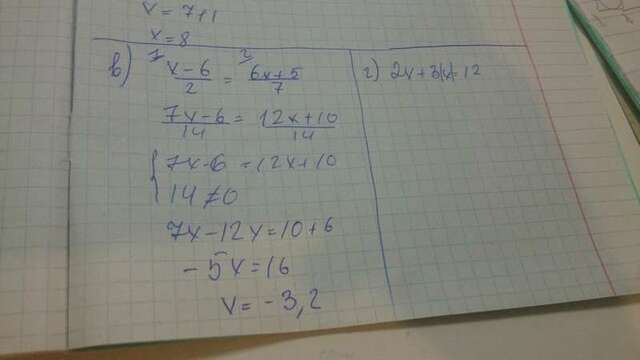 x = 7+1
x = 8
в) 7 x-6/2 = 2 6x+5/7
7x-6/14 = 12x+10/14
{ 7x-6 = 12x+10
14 ≠ 0
7x-12x=10+6
-5x=16
x= -3,2
г) 2x+3|x|=12